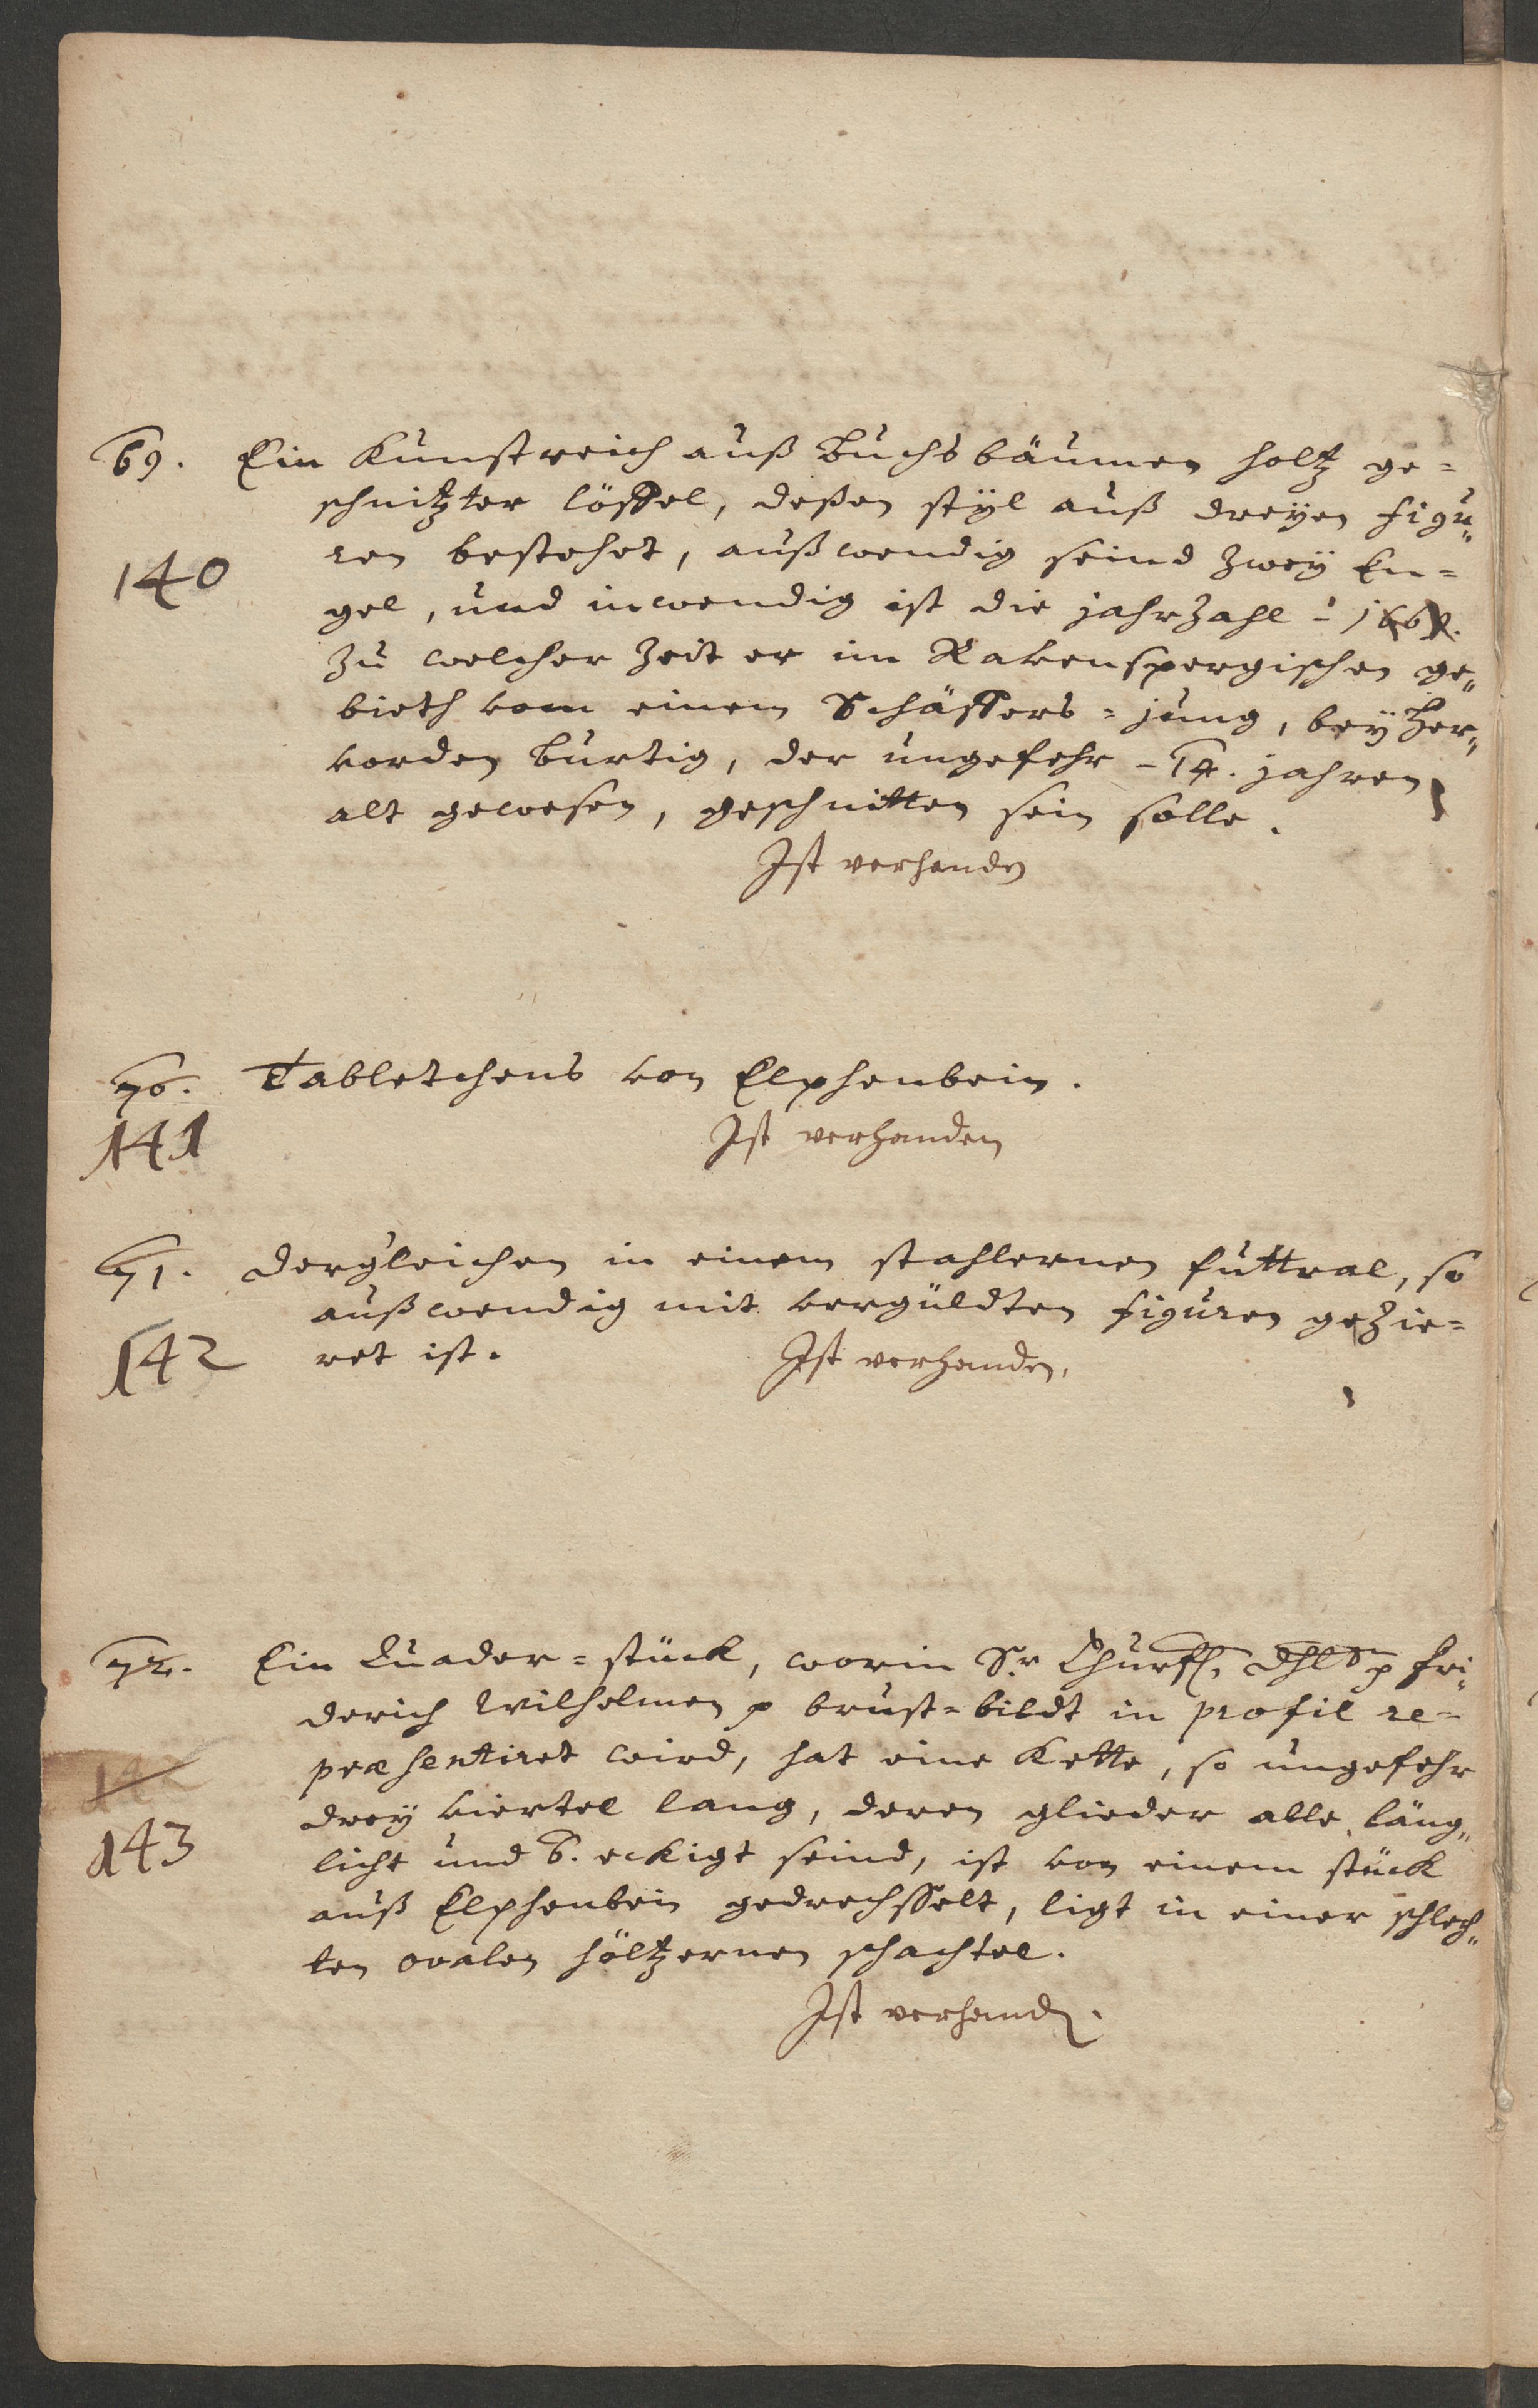 69. Ein Kunstreich auß Buchsbäumen holtz ge=
schnitzter löffel, deßen styl auß dreyen figu„
ren bestehet, außwendig seind zwey En=
140
gel, und inwendig ist die jahrzahl -
zu welcher Zeit er im Ravenspergischen ge„
bieth vom einem Schäffers=jung, bey Her„
vorden burtig, der ungefehr - 14. jahren
alt gewesen, geschnitten sein solle.
Ist verhanden
70. Tabletchens von Elphenbein.
141
Ist verhanden
71. dergleichen in einem stahlernen futtral, so
außwendig mit vergüldten figuren gezie=
142 ret ist. Ist verhanden,
72. Ein Quader=stück, worin Sr Churfl. Dhltp fri„
derich Wilhelmen p brust=bildt in profil re=
præsentiret wird, hat eine Kette, so ungefehr
142
drey viertel lang, deren glieder alle läng„
143
licht und 6. eckigt seind, ist von einem stück
auß Elphenbein gedrechsselt, ligt in einer schlech„
ten ovalen höltzernen schachtel.
Ist verhand.